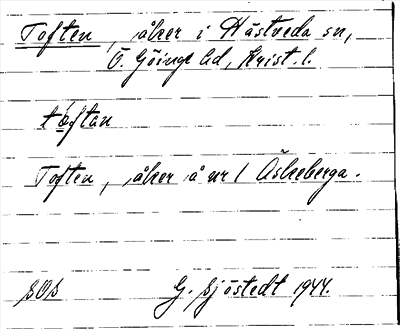 Toften, åker i Hästveda sn,
Ö. Göinge hd, Krist. l.
tɷftan
Toften, åker å nr 1 Äskeberga.
SOS G. Sjöstedt 1944.